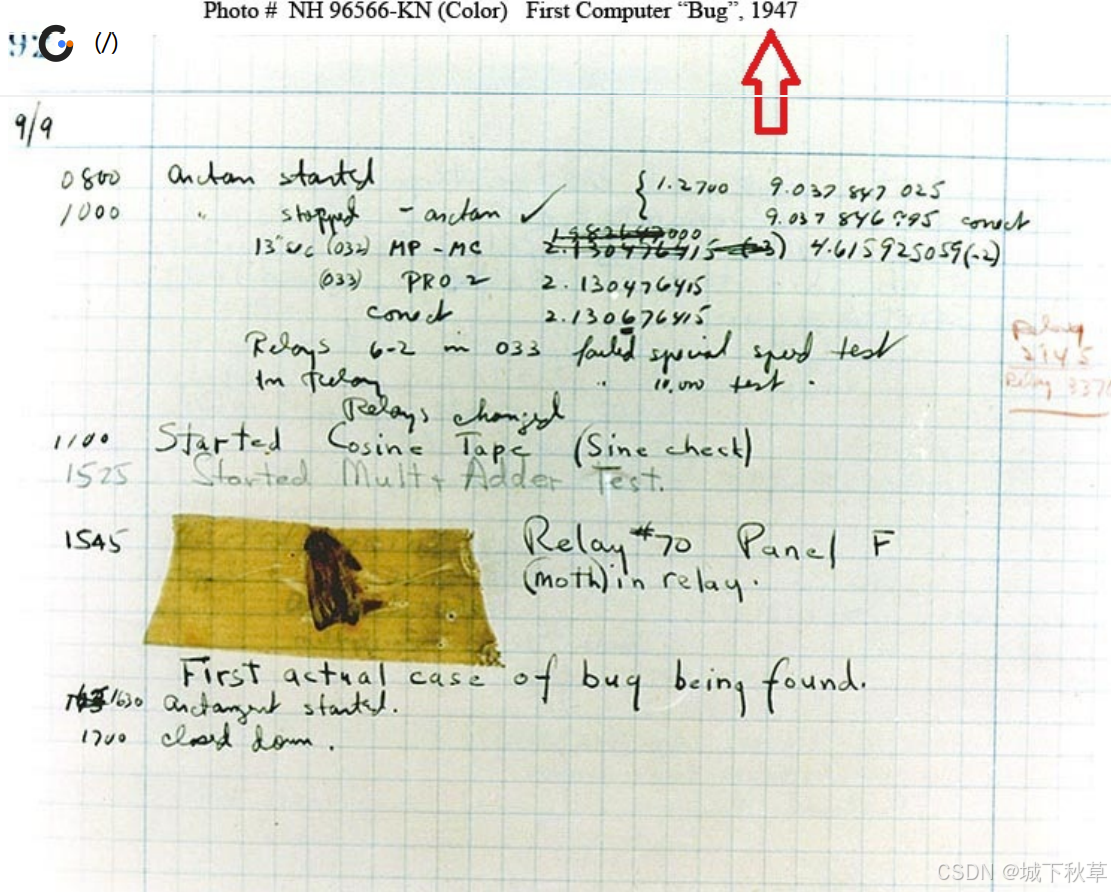 Photo # NH 96566-KN (Color) First Computer “Bug”, 1947
92
(/)
9/9
0800 arctan started { 1.2700 9.037 847 025
1000 " stopped - arctan ✓ 9.037 846 995 correct
13"uc (032) MP - MC 2.130476415 (-3) 4.615925059(-2)
(033) PRO 2 2.130476415
correct 2.130676415
Relays 6-2 in 033 failed special speed test
In Relay " 10,000 test.
Relay
2145
Relay 337
Relays changed
1100 Started Cosine Tape (Sine check)
1525 Started Mult + Adder Test.
1545 Relay #70 Panel F
(moth) in relay.
First actual case of bug being found.
1630 arctangent started.
1700 closed down.
CSDN @城下秋草